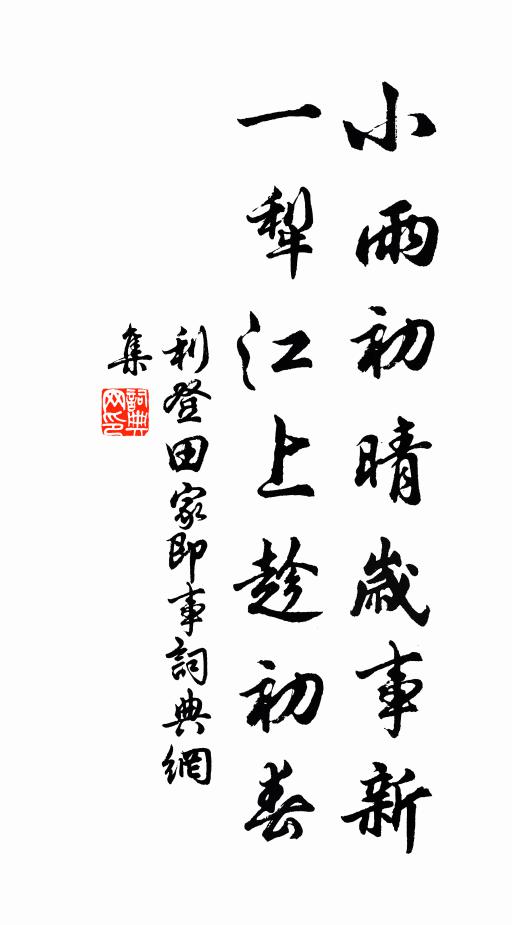 小雨初晴歲事新
一犂江上趁初春
利登田家即事詞典網
集
詞典
网印